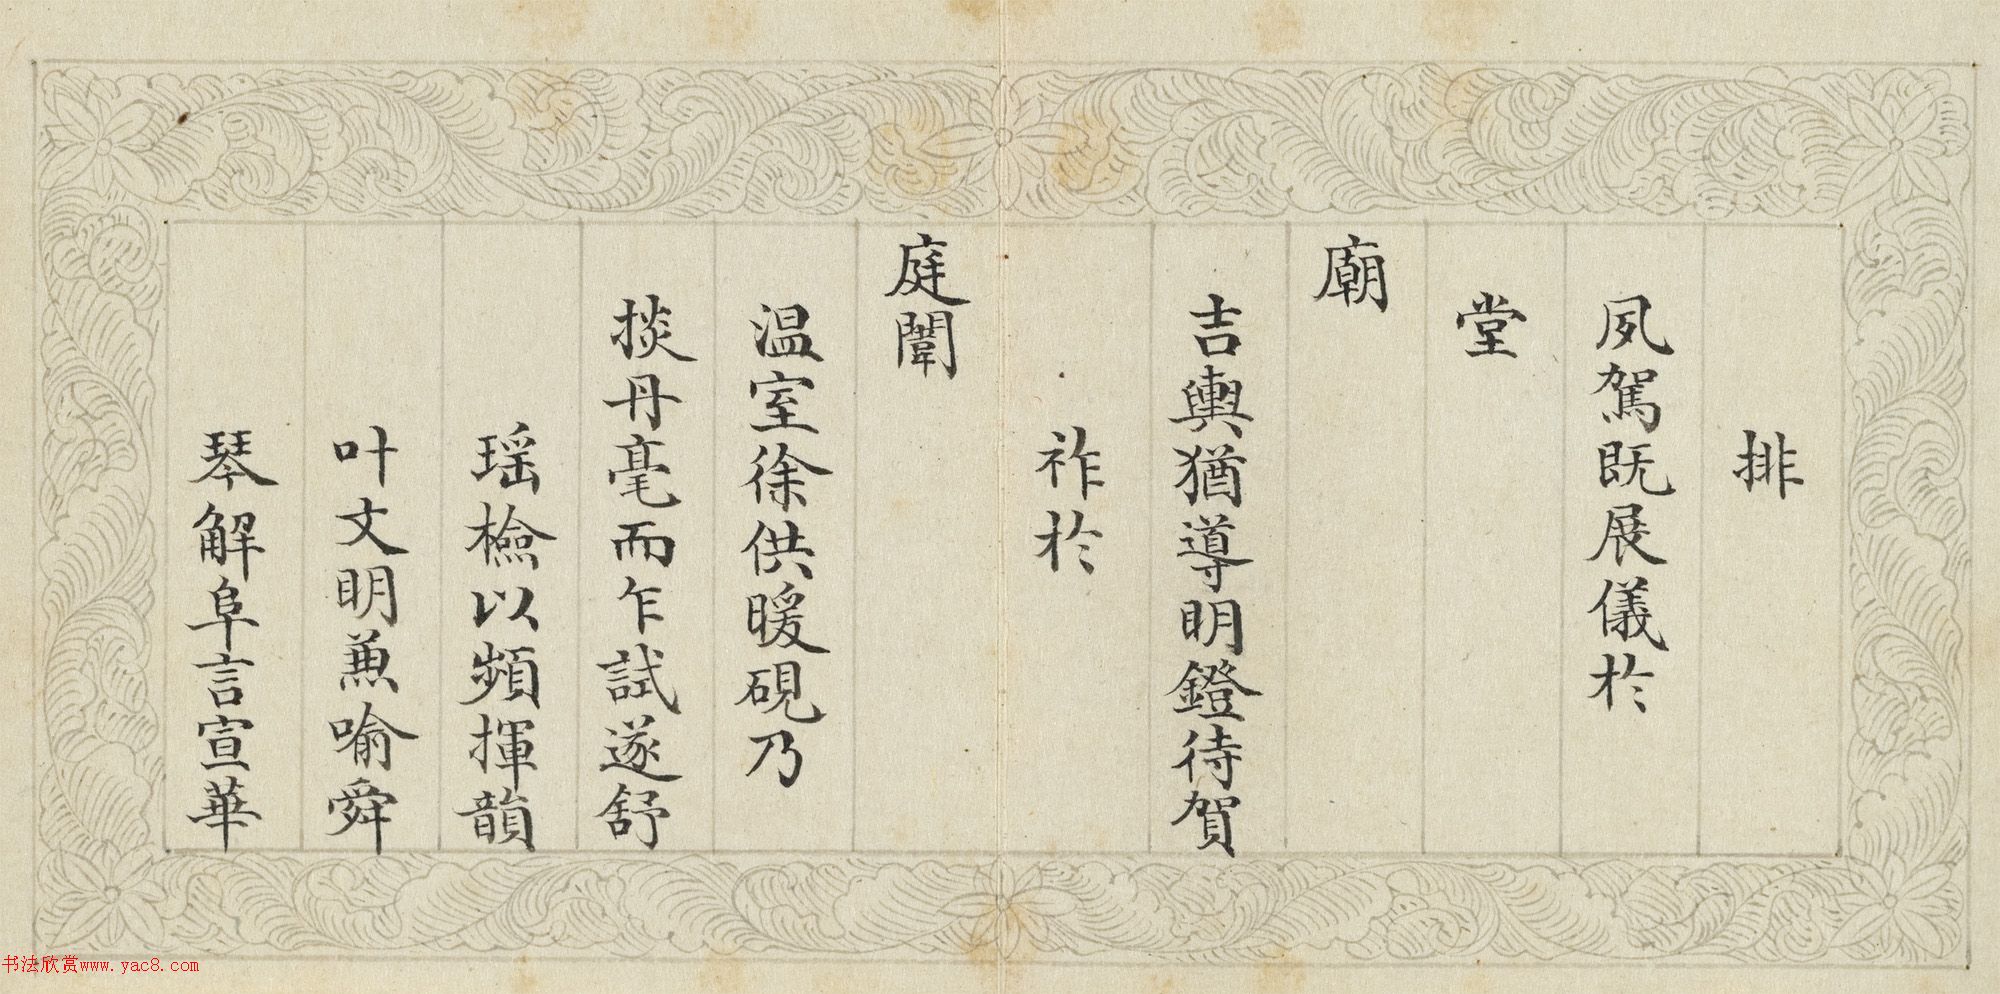 排
夙駕既展儀於
堂
廟
吉輿猶導明鐙待賀
祚於
庭闈
温室徐供暖硯乃
掞丹毫而乍試遂舒
瑶檢以頻揮韻
叶文明兼喻舜
琴解阜言宣華
书法欣赏www.yac8.com